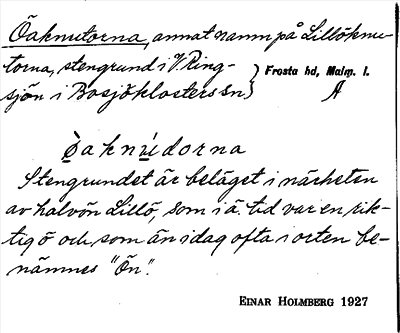 Öaknutorna, annat namn på Lillöknu-
torna, stengrund i V. Ring-
sjön i Bosjöklosters sn,) Frosta hd, Malm. l.
A
Öaknúdorna
Stengrundet är beläget i närheten
av halvön Lillö, som i ä. tid var en rik-
tig ö och som än idag ofta i orten be-
nämnes "Ön".
EINAR HOLMBERG 1927